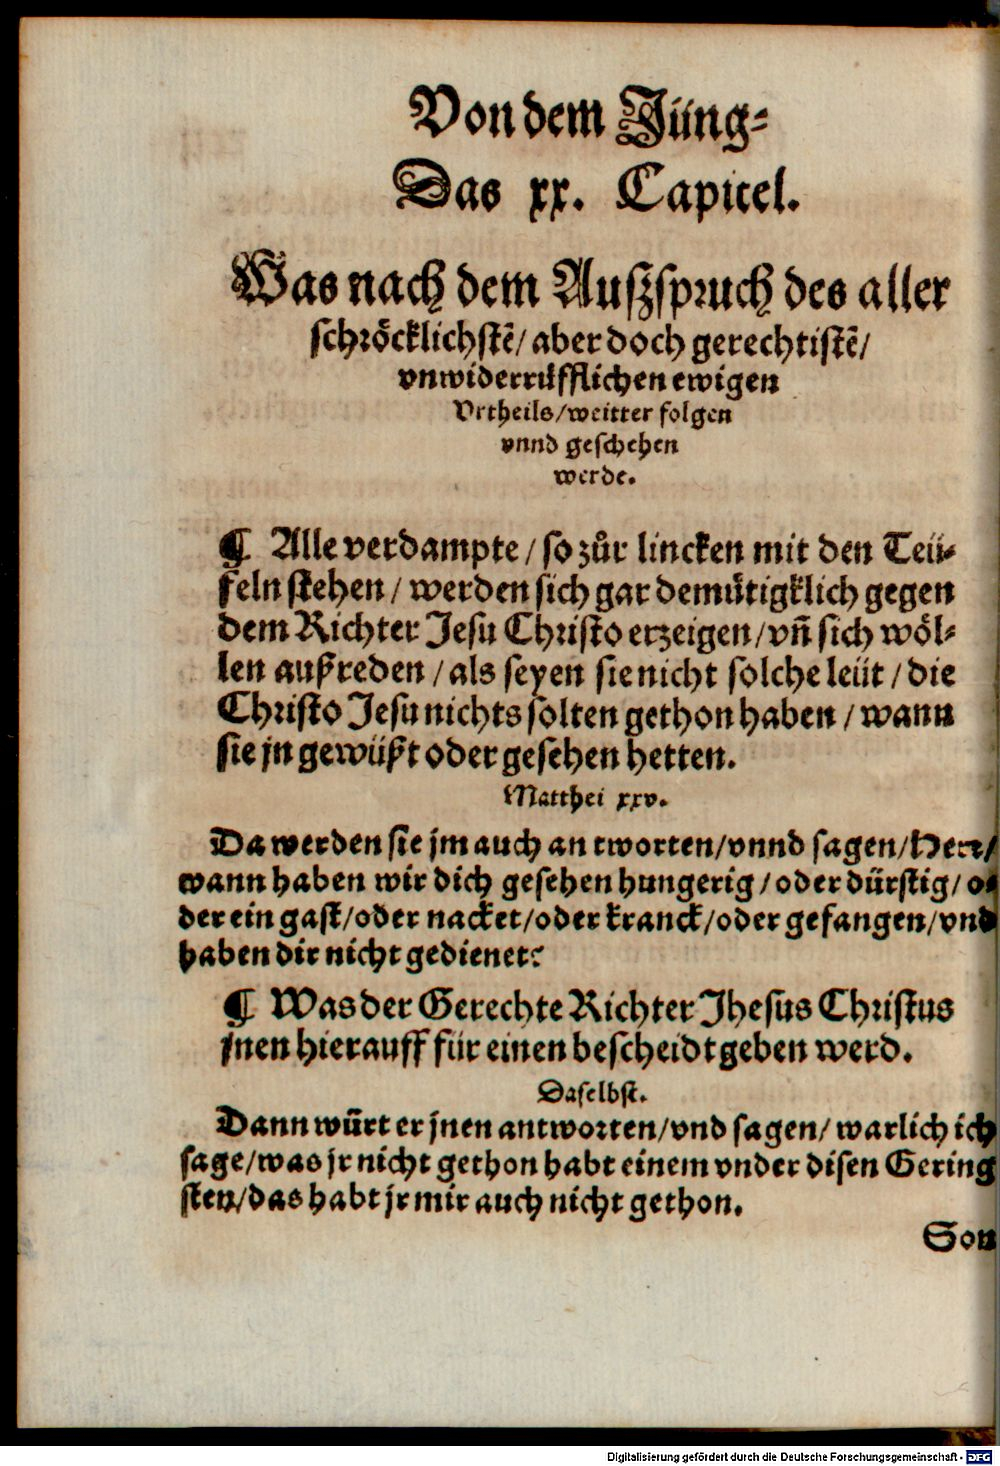 Von dem Jüng-
Das xx. Capitel.
Was nach dem Auszspruch des aller
schröcklichstē/ aber doch gerechtistē/
vnwiderrüfflichen ewigen
Vrtheils/weitter folgen
vnnd geschehen
werde.
¶ Alle verdampte/ so zůr lincken mit den Teü-
feln stehen/ werden sich gar demütigklich gegen
dem Richter Jesu Christo erzeigen/vñ sich wöl-
len außreden/als seyen sie nicht solche leüt/die
Christo Jesu nichts solten gethon haben/wann
sie jn gewüßt oder gesehen hetten.
Matthei xxv.
Da werden sie jm auch antworten/vnnd sagen/Herr/
wann haben wir dich gesehen hungerig/oder dürstig/ o-
der ein gast/oder nacket/oder kranck/oder gefangen/vnd
haben dir nicht gedienet?
¶ Was der Gerechte Richter Jhesus Christus
jnen hierauff für einen bescheidt geben werd.
Daselbst.
Dann würt er jnen antworten/vnd sagen/ warlich ich
sage/was jr nicht gethon habt einem vnder disen Gering
sten/das habt jr mir auch nicht gethon.
Son
Digitalisierung gefördert durch die Deutsche Forschungsgemeinschaft - DFG